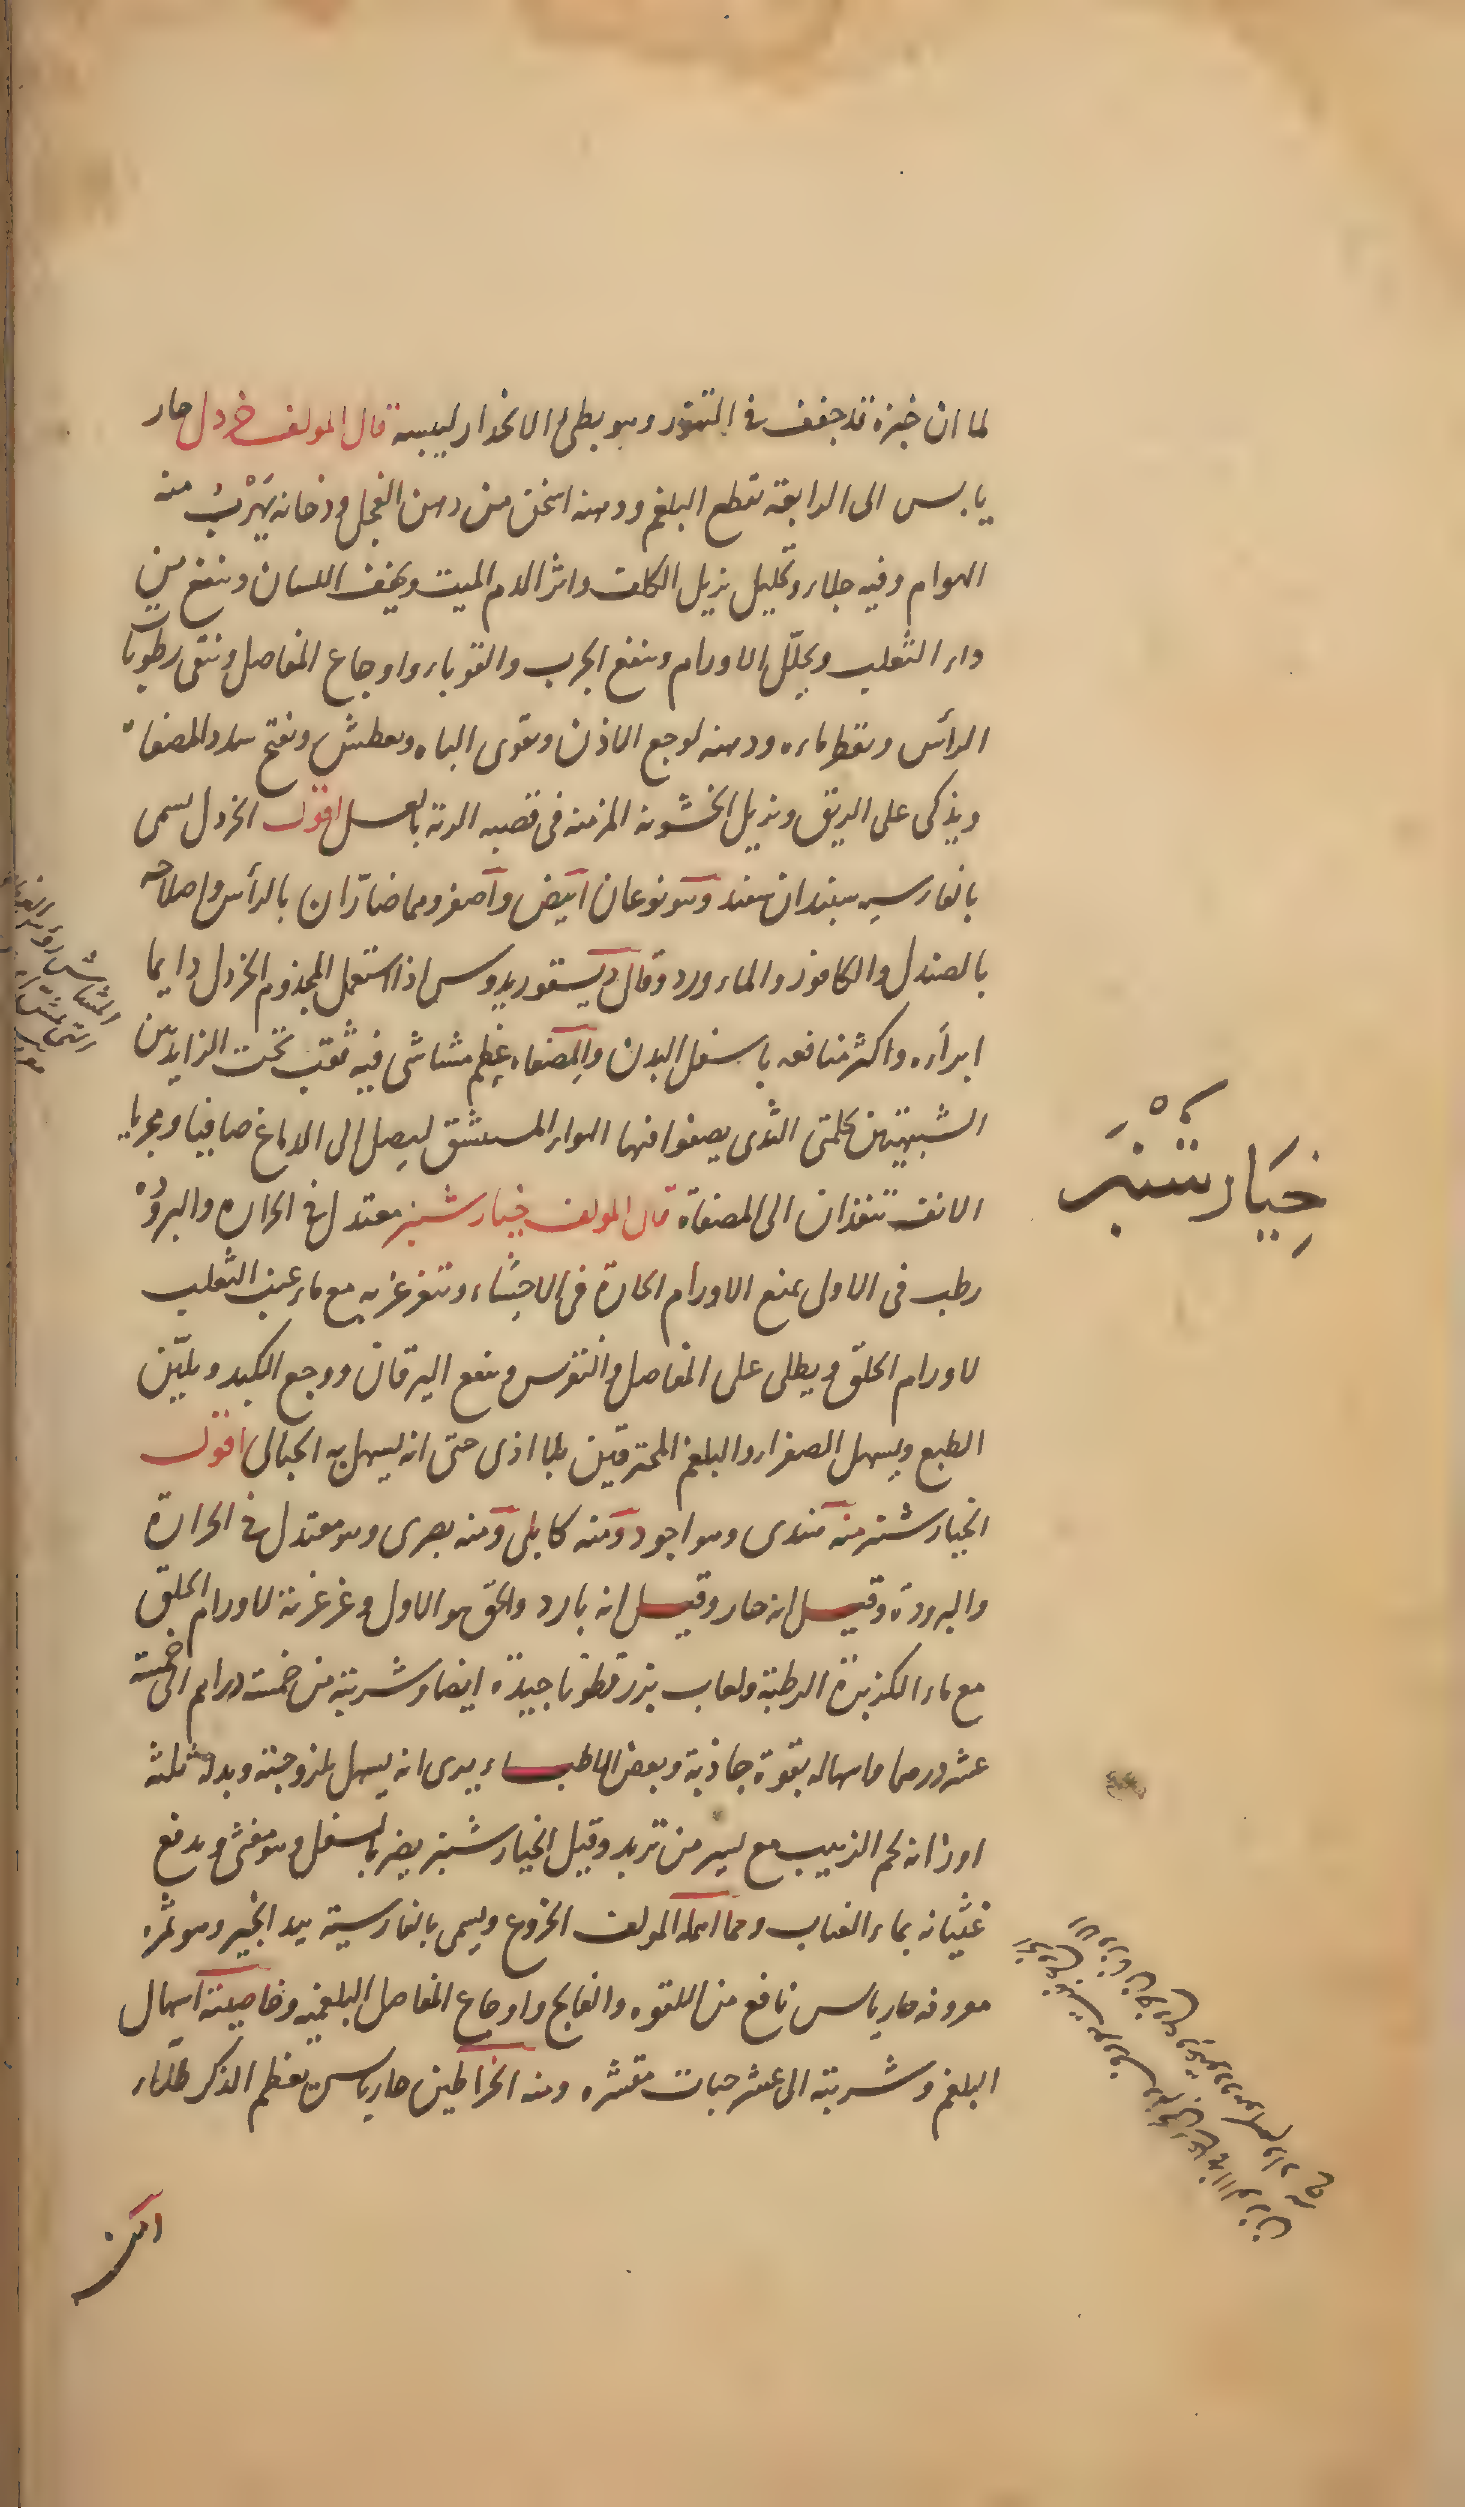 لما ان خبزه قد جفف فى التنور وهو بطئ الانحدار ليبسه قال المولف خردل حار
يابس الى الرابعة تقطع البلغم ودهنه اسخن من دهن الفجل ودخانه يَهْرُبُ منه
الهوام وفيه جلاء وتحليل يزيل الكلف واثر الدم الميت ويخفف اللسان وينفع من
داء الثعلب ويحلّل الاورام وينفع الجرب والقوباء واوجاع المفاصل وينقى رطوبات
الرأس ويقطر ماءه ودهنه لوجع الاذن ويقوى الباه ويعطش ويفتح سدد المصفاة
ويذكى على الريق ويزيل الخشونة المزمنة فى قصبه الرئة بالعسل اقول الخردل يسمى
بالفارسيه سبندان سفند وهو نوعان ابيض واصفر وهما ضارّان بالرأس واصلاحه
بالصندل والكافور والماء ورد وقال ديسقوريدوس اذا استعمل المجذوم الخردل دايما
ابرأه واكثر منافعه باسفل البدن والمصفاه عظم مشاشى فيه ثقب تحت الزايدتين
الشبيهتين بحلمتى الثدى يصفوا فيها الهواء المستنشق ليصل الى الدماغ صافيا ومجريا
الانف تنفذان الى المصفاة قال المولف خيار شنبر معتدل فى الحراره والبرودة
رطب فى الاول يمنع الاورام الحارة فى الاحشاء وتغرغر به مع ماء عنب الثعلب
لاورام الحلق ويطلى على المفاصل والنقرس وينفع اليرقان ووجع الكبد ويليّن
الطبع ويسهل الصفراء والبلغم المحترقين بلا اذى حتى انه يسهل به الحبالى اقول
الخيار شنبر منه هندى وهو اجود ومنه كابلى ومنه بصرى وهو معتدل فى الحرارة
والبرودة وقيل انه حار وقيل انه بارد والحق هو الاول وغرغرته لاورام الحلق
مع ماء الكزبرة الرطبة ولعاب بزر قطونا جيدة ايضا وشربته من خمسة دراهم الى خمسة
عشر درهما واسهاله بقوة جاذبة وبعض الاطباء يرى انه يسهل بلزوجته وبدله ثلثه
اوزانه لحم الزبيب مع يسير من تربد وقيل الخيار شنبر يضر بالسفل وهو مغثى ويدفع
غثيانه بماء العناب ومما اهمله المولف الخروع ويسمى بالفارسية بيد انجير وهو ثمره
معروفه حار يابس نافع من اللقوه والفالج واوجاع المفاصل البلغميه وخاصيته اسهال
البلغم وشربته الى عشر حبات مقشره ومنه الخراطين حار يابس يعظم الذكر طلاء
خِيَار شَنْبَر